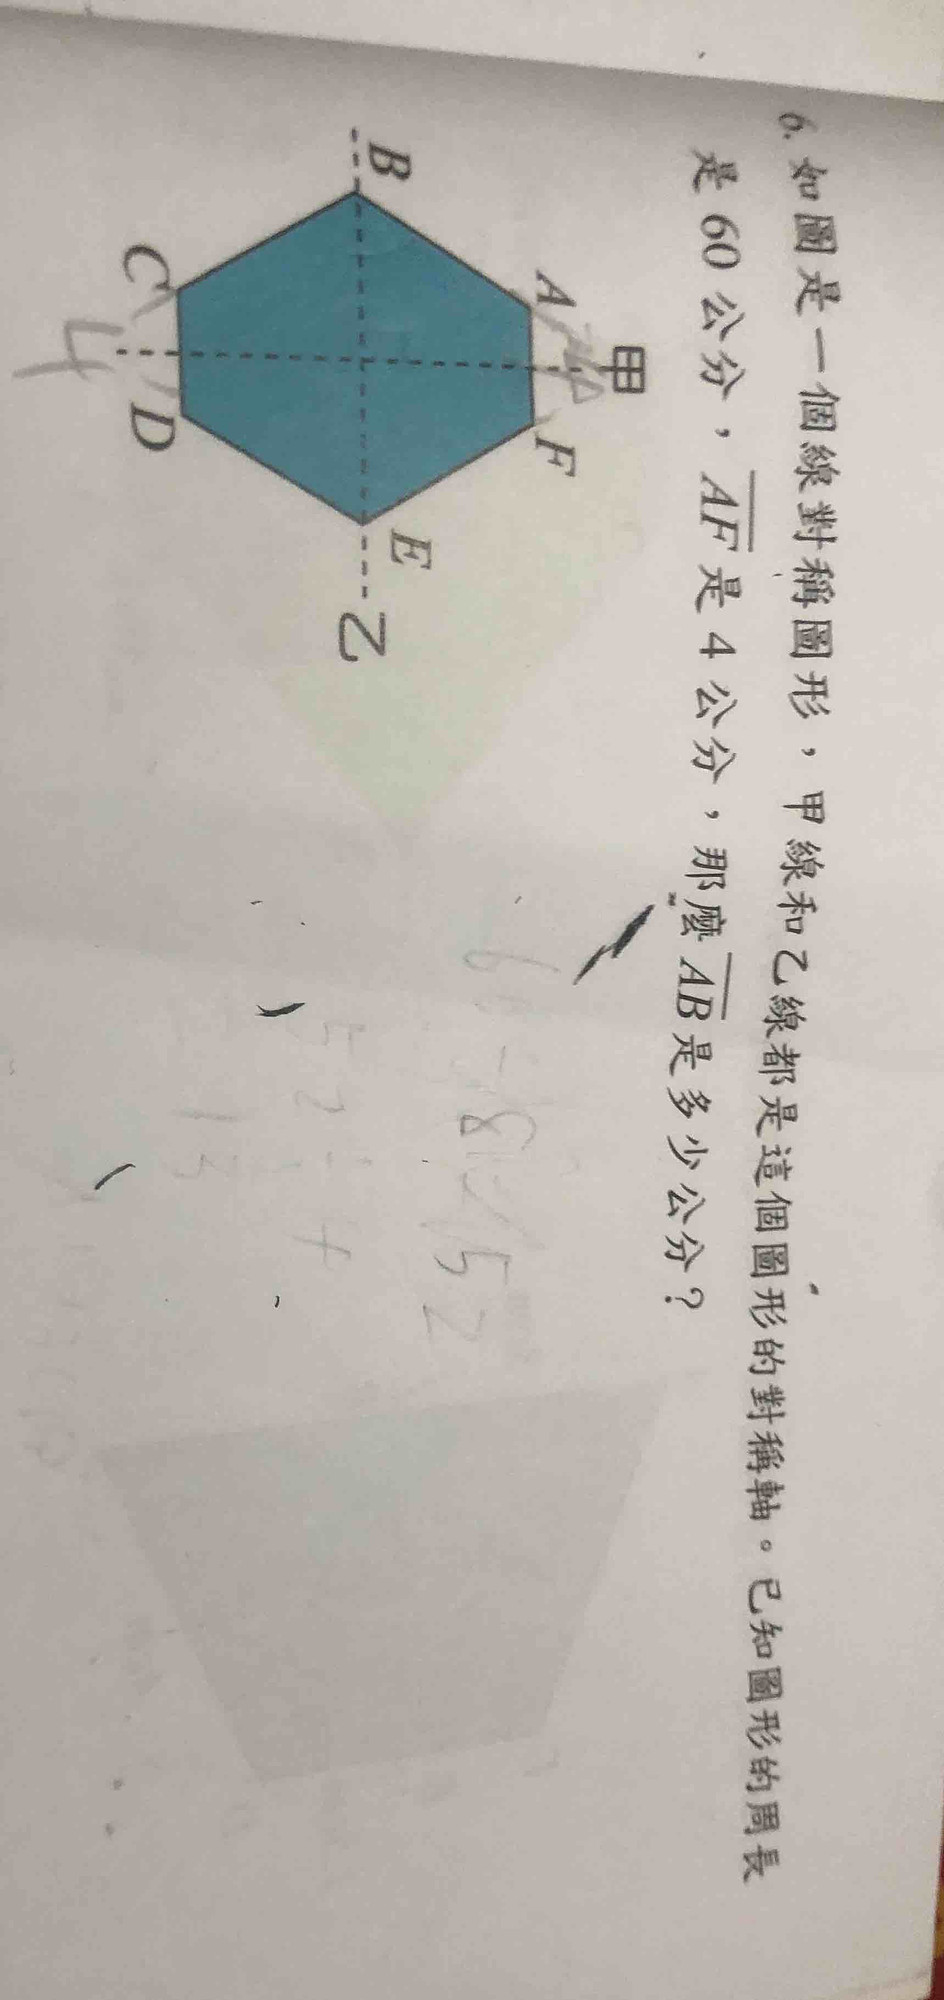 6. 如圖是一個線對稱圖形，甲線和乙線都是這個圖形的對稱軸。已知圖形的周長
是 60 公分，AF 是 4 公分，那麼 AB 是多少公分？
甲
A F
B E 乙
C D
4
60-8=52
52÷4
13